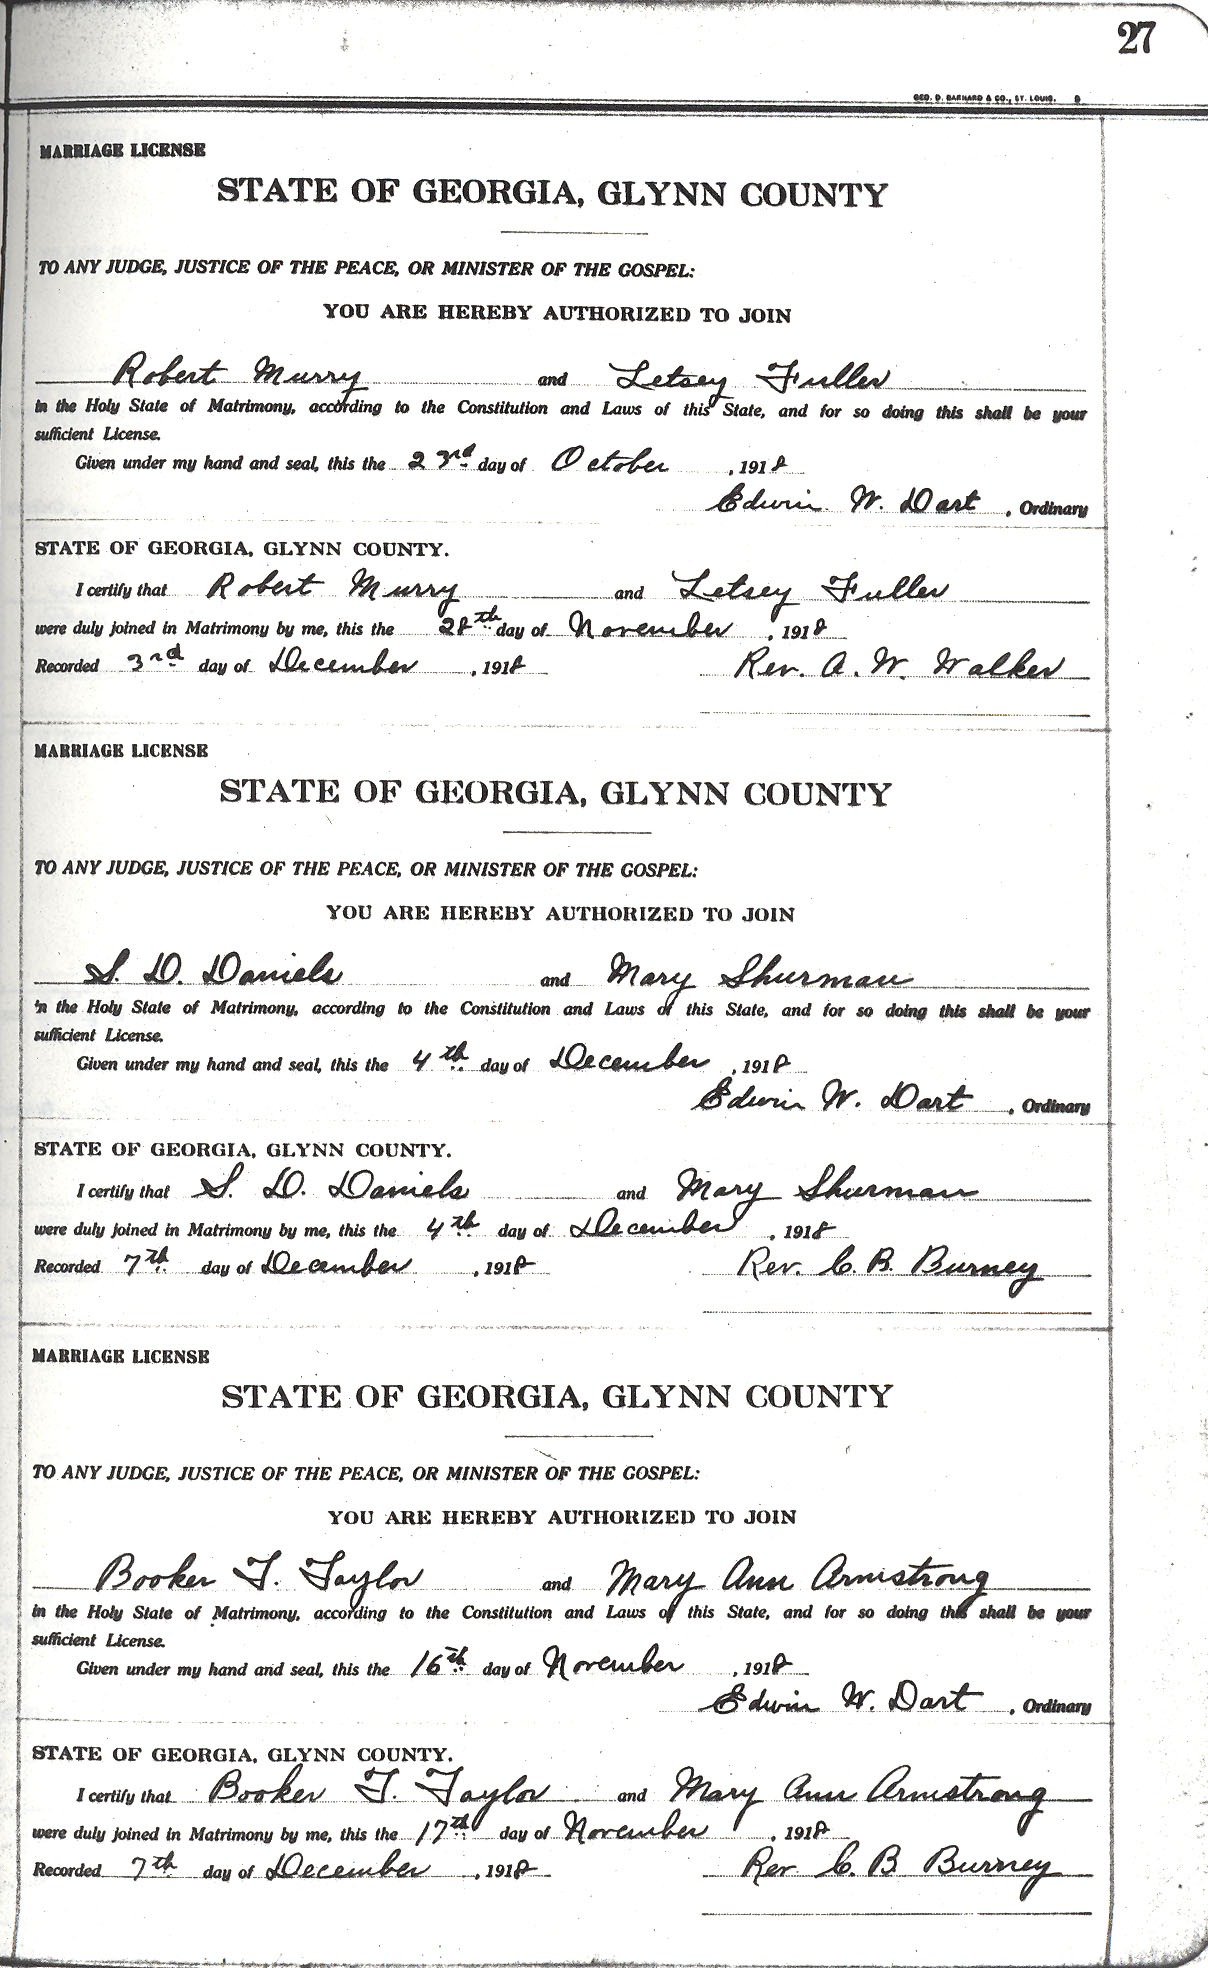 27
GEO. D. BARNARD & CO., ST. LOUIS. B
MARRIAGE LICENSE
STATE OF GEORGIA, GLYNN COUNTY
TO ANY JUDGE, JUSTICE OF THE PEACE, OR MINISTER OF THE GOSPEL:
YOU ARE HEREBY AUTHORIZED TO JOIN
Robert Murry and Letsey Fuller
in the Holy State of Matrimony, according to the Constitution and Laws of this State, and for so doing this shall be your
sufficient License.
Given under my hand and seal, this the 23rd day of October, 1918
Edwin W. Dart, Ordinary
STATE OF GEORGIA, GLYNN COUNTY.
I certify that Robert Murry and Letsey Fuller
were duly joined in Matrimony by me, this the 28th day of November, 1918
Recorded 3rd day of December, 1918 Rev. A. W. Walker
MARRIAGE LICENSE
STATE OF GEORGIA, GLYNN COUNTY
TO ANY JUDGE, JUSTICE OF THE PEACE, OR MINISTER OF THE GOSPEL:
YOU ARE HEREBY AUTHORIZED TO JOIN
S. D. Daniels and Mary Shurman
in the Holy State of Matrimony, according to the Constitution and Laws of this State, and for so doing this shall be your
sufficient License.
Given under my hand and seal, this the 4th day of December, 1918
Edwin W. Dart, Ordinary
STATE OF GEORGIA, GLYNN COUNTY.
I certify that S. D. Daniels and Mary Shurman
were duly joined in Matrimony by me, this the 4th day of December, 1918
Recorded 7th day of December, 1918 Rev. C. B. Burney
MARRIAGE LICENSE
STATE OF GEORGIA, GLYNN COUNTY
TO ANY JUDGE, JUSTICE OF THE PEACE, OR MINISTER OF THE GOSPEL:
YOU ARE HEREBY AUTHORIZED TO JOIN
Booker T. Taylor and Mary Ann Armstrong
in the Holy State of Matrimony, according to the Constitution and Laws of this State, and for so doing this shall be your
sufficient License.
Given under my hand and seal, this the 16th day of November, 1918
Edwin W. Dart, Ordinary
STATE OF GEORGIA, GLYNN COUNTY.
I certify that Booker T. Taylor and Mary Ann Armstrong
were duly joined in Matrimony by me, this the 17th day of November, 1918
Recorded 7th day of December, 1918 Rev C. B Burney